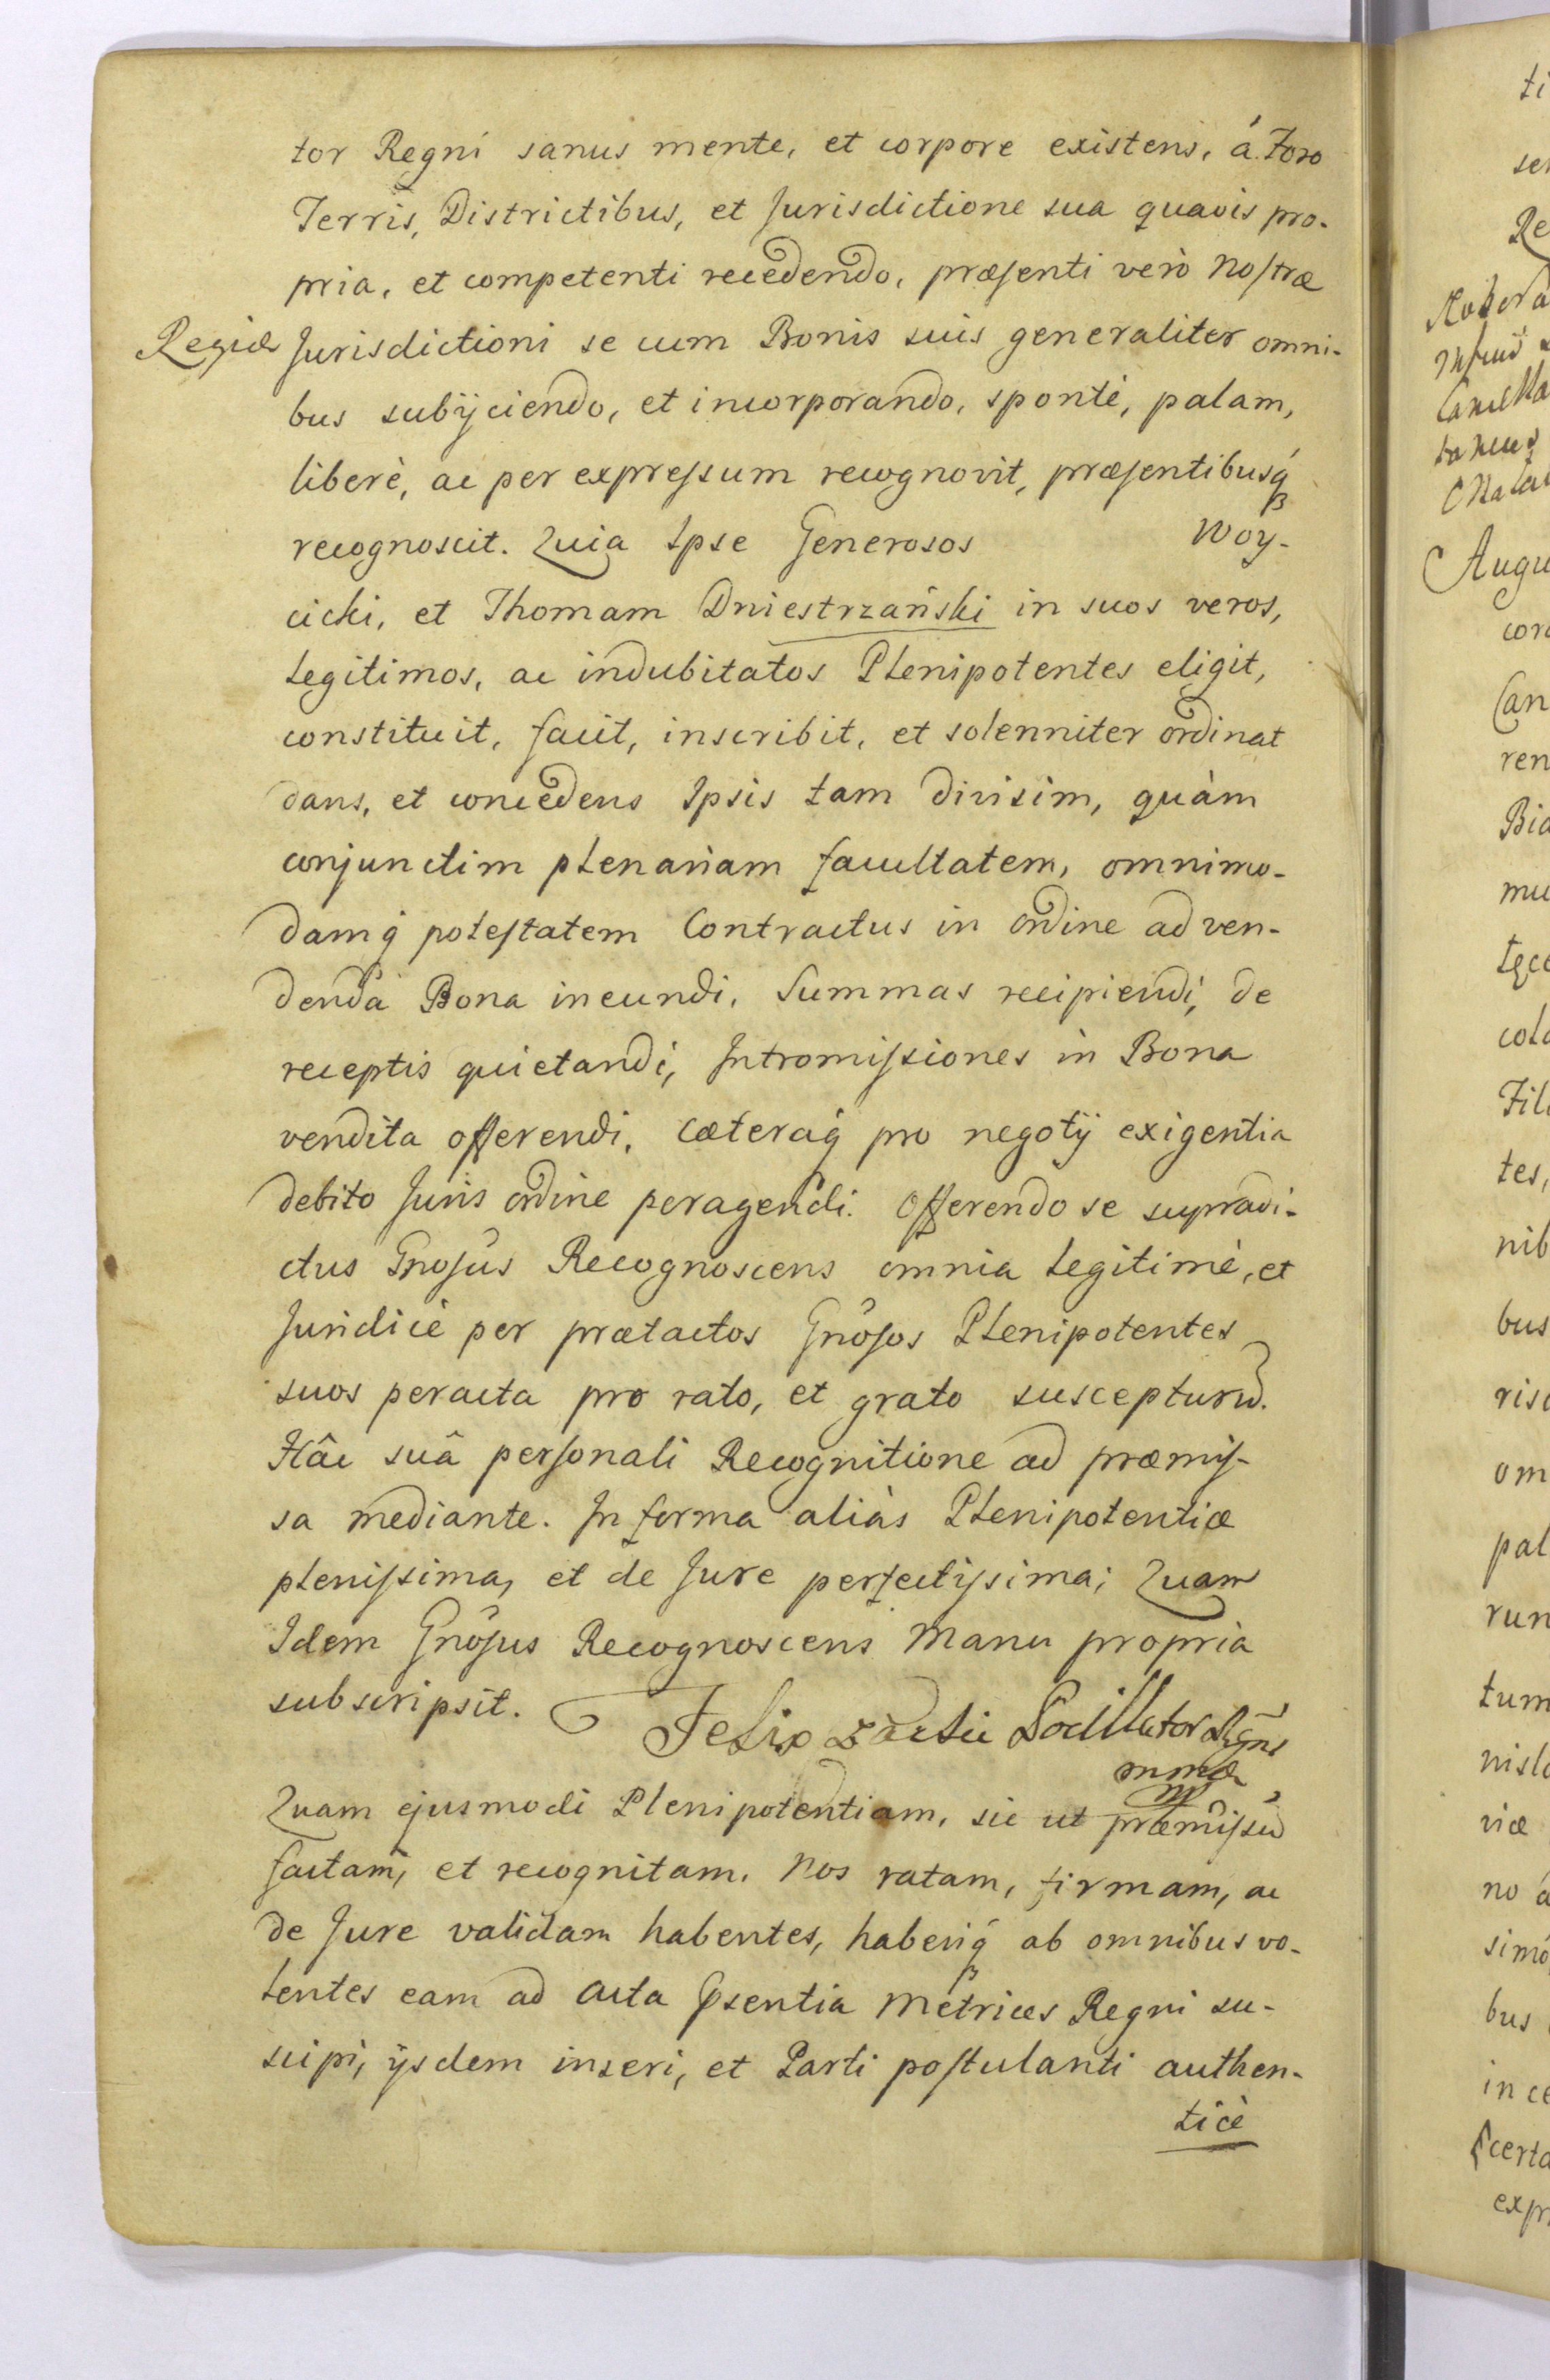 tor Regni sanus mente, et corpore existens, á Foro
Terris, Districtibus, et Jurisdictione sua quavis pro-
pria, et competenti recedendo, præsenti verò Nostræ
Regiæ Jurisdictioni se cum Bonis suis generaliter omni-
bus subÿciendo, et incorporando, spontè, palam,
liberè, ac per expressum recognovit, præsentibusq́
recognoscit. Quia Ipse Generosos Woy-
cicki, et Thomam Dniestrzański in suos veros,
legitimos, ac indubitatos Plenipotentes eligit,
constituit, facit, inscribit, et solenniter ordinat
dans, et concedens Ipsis tam divisim, quàm
conjunctim plenariam facultatem, omnimo-
damq́ potestatem Contractus in ordine ad ven-
denda Bona ineundi, Summas recipiendi, de
receptis quietandi, Intromissiones in Bona
vendita offerendi, cæteraq́ pro negotÿ exigentia
debito Juris ordine peragendi. Offerendo se supradi-
ctus Gnosus Recognoscens omnia legitimè, et
Juridicè per prætactos Gnosos Plenipotentes
suos peracta pro rato, et grato suscepturū.
Hâc suâ personali Recognitione ad præmis-
sa mediante. In forma aliàs Plenipotentiæ
plenissima, et de Jure perfectissima; Quam
Idem Gnosus Recognoscens Manu propria
subscripsit.
Felix Pocillator Regni
Quam ejusmodi Plenipotentiam, sic ut præmissū
factam, et recognitam. Nos ratam, firmam, ac
de Jure validam habentes, haberiq́ ab omnibus vo-
lentes eam ad Acta Psentia Metrices Regni su-
scipi, ÿsdem inseri, et Parti postulanti authen-
ticè
ti
Re
Augu
Can
ren
Bia
mu
Fil
tes,
nib
bus
risc
om
pal
run
tum
viæ
no á
bus
in ce
certa
exp